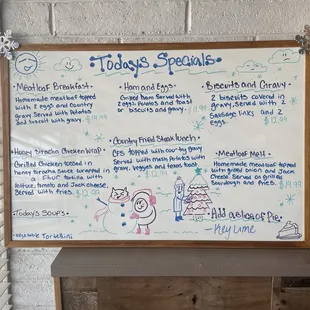 Todays Specials
Meatloaf Breakfast
Homemade meatloaf topped
with 2 eggs and country
gravy Served with Potatos
and biscuit with gravy
$14.99
Ham and Eggs
Grilled Ham Served with
2 eggs, Potatos and toast
or biscuits and gravy
Biscuits and Gravy
2 biscuits covered in
gravy, served with 2
Sausage links and 2
eggs
$12.99
Honey Sriracha Chicken Wrap
Grilled Chicken tossed in
honey Sriracha Sauce wrapped in
a Flour tortilla with
lettuce, tomato and Jack cheese.
Served with fries
Country Fried Steak Lunch
CFS topped with country gravy
Served with mash potatos with
gravy, veggies and texas toast
Meatloaf Melt
Homemade meatloaf topped
with grilled onion and Jack
Cheese. Served on grilled
Sourdough and fries.
$14.99
Todays Soups
vegetable Tortellini
Add a slice of Pie
Key Lime